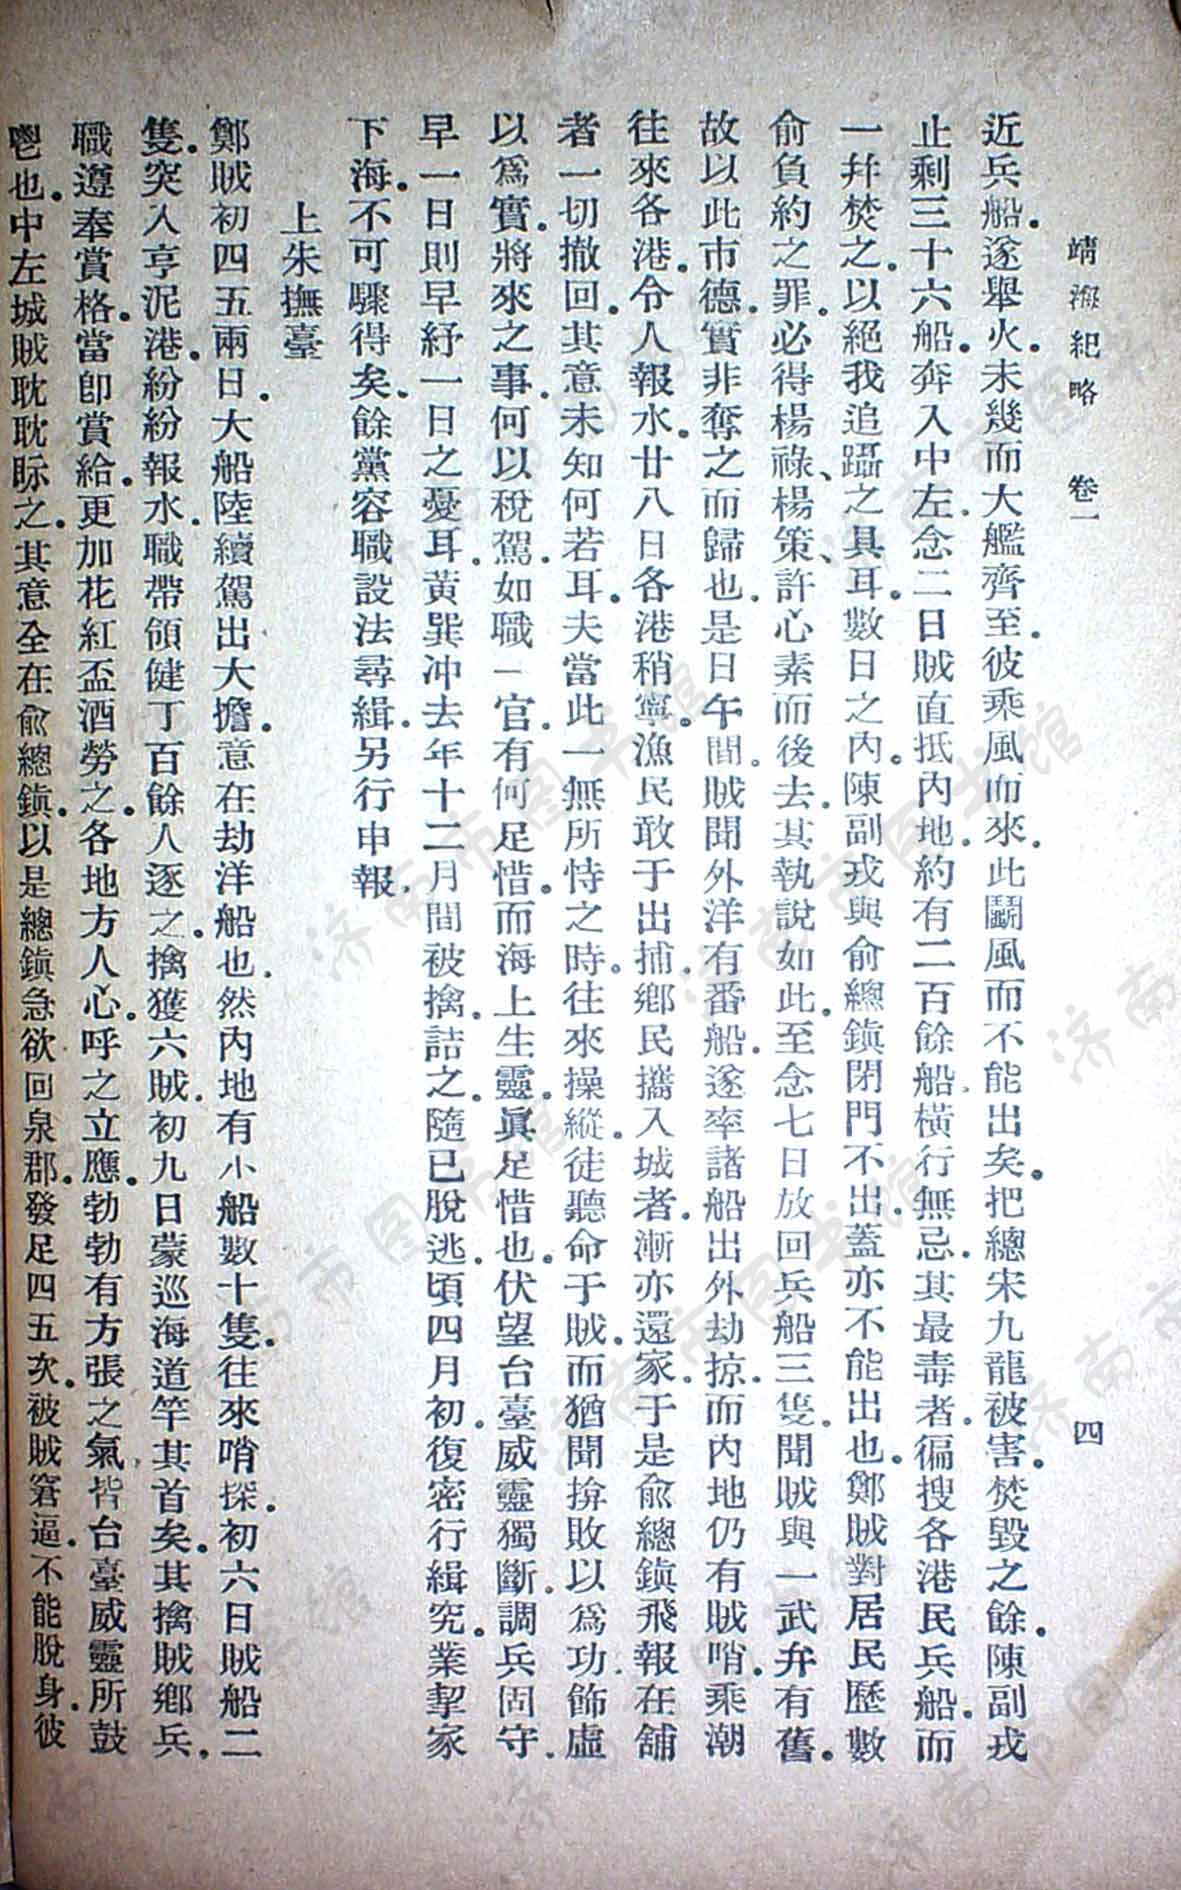 靖海紀略　卷一　四
近兵船。遂舉火。未幾而大艦齊至。彼乘風而來。此鬭風而不能出矣。把總宋九龍被害。焚毀之餘。陳副戎
止剩三十六船。奔入中左。念二日賊直抵內地。約有二百餘船。橫行無忌。其最毒者。徧搜各港民兵船。而
一幷焚之。以絕我追躡之具耳。數日之內。陳副戎與俞總鎭閉門不出。蓋亦不能出也。鄭賊對居民歷數
俞負約之罪。必得楊祿、楊策、許心素而後去。其執說如此。至念七日放回兵船三隻。聞賊與一武弁有舊。
故以此市德。實非奪之而歸也。是日午間。賊聞外洋有番船。遂率諸船出外劫掠。而內地仍有賊哨。乘潮
往來各港。令人報水。廿八日各港稍寧。漁民敢于出捕。鄉民攜入城者。漸亦還家。于是俞總鎭飛報在舖
者一切撤回。其意未知何若耳。夫當此一無所恃之時。往來操縱。徒聽命于賊。而猶聞掩敗以爲功。飾虛
以爲實。將來之事。何以稅駕。如職一官。有何足惜。而海上生靈。眞足惜也。伏望台臺威靈獨斷。調兵固守。
早一日則早紓一日之憂耳。黃巽冲去年十二月間被擒。詰之。隨已脫逃。頃四月初。復密行緝究。業挈家
下海。不可驟得矣。餘黨容職設法尋緝。另行申報。
上朱撫臺
鄭賊初四五兩日。大船陸續駕出大擔。意在劫洋船也。然內地有小船數十隻。往來哨探。初六日賊船二
隻。突入亨泥港。紛紛報水。職帶領健丁百餘人逐之。擒獲六賊。初九日蒙巡海道竿其首矣。其擒賊鄉兵。
職遵奉賞格。當卽賞給。更加花紅盃酒勞之。各地方人心。呼之立應。勃勃有方張之氣。皆台臺威靈所鼓
鬯也。中左城賊耽耽眎之。其意全在俞總鎭。以是總鎭急欲回泉郡。發足四五次。被賊窘逼。不能脫身。彼